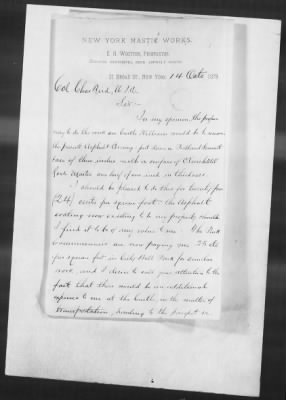 NEW YORK MASTIC WORKS.
E. H. WOOTTON, PROPRIETOR.
21 BROAD ST., NEW YORK, 14 Octo 1879
Col Chas Bird, U.S.A.
Sir,
In my opinion the proper
way to do the work on Castle Williams would be to remove
the present Asphalt Covering, put down a Portland Cement
base of three inches with a surface of
Rock Mastic one half of an inch in thickness.
I should be pleased to do this for twenty four
(24) cents per square foot. The Asphalt
coating now existing to be my property should
I find it to be of any value to me. The Park
Commissioners are now paying me 25 cts
per square foot in City Hall Park for similar
work, and I desire to call your attention to the
fact that there would be an additional
expense to me at the Castle, in the matter of
transportation, hoisting to the parapet &c.